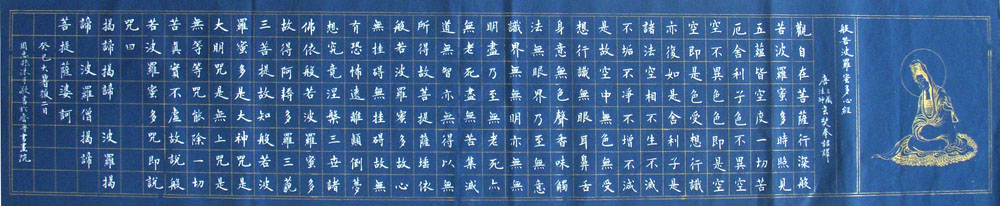 般若波羅蜜多心經
唐三藏法師玄奘奉詔譯
觀自在菩薩行深般
若波羅蜜多時照見
五蘊皆空度一切苦
厄舍利子色不異空
空不異色色即是空
空即是色受想行識
亦復如是舍利子是
諸法空相不生不滅
不垢不淨不增不減
是故空中無色無受
想行識無眼耳鼻舌
身意無色聲香味觸
法無眼界乃至無意
識界無無明亦無無
明盡乃至無老死亦
無老死盡無苦集滅
道無智亦無得以無
所得故菩提薩埵依
般若波羅蜜多故心
無挂礙無挂礙故無
有恐怖遠離顛倒夢
想究竟涅槃三世諸
佛依般若波羅蜜多
故得阿耨多羅三藐
三菩提故知般若波
羅蜜多是大神咒是
大明咒是無上咒是
無等等咒能除一切
苦真實不虛故說般
若波羅蜜多咒即說
咒曰
揭諦揭諦 波羅揭
諦 波羅僧揭諦
菩提薩婆訶
癸巳大暑後二日
書畫院